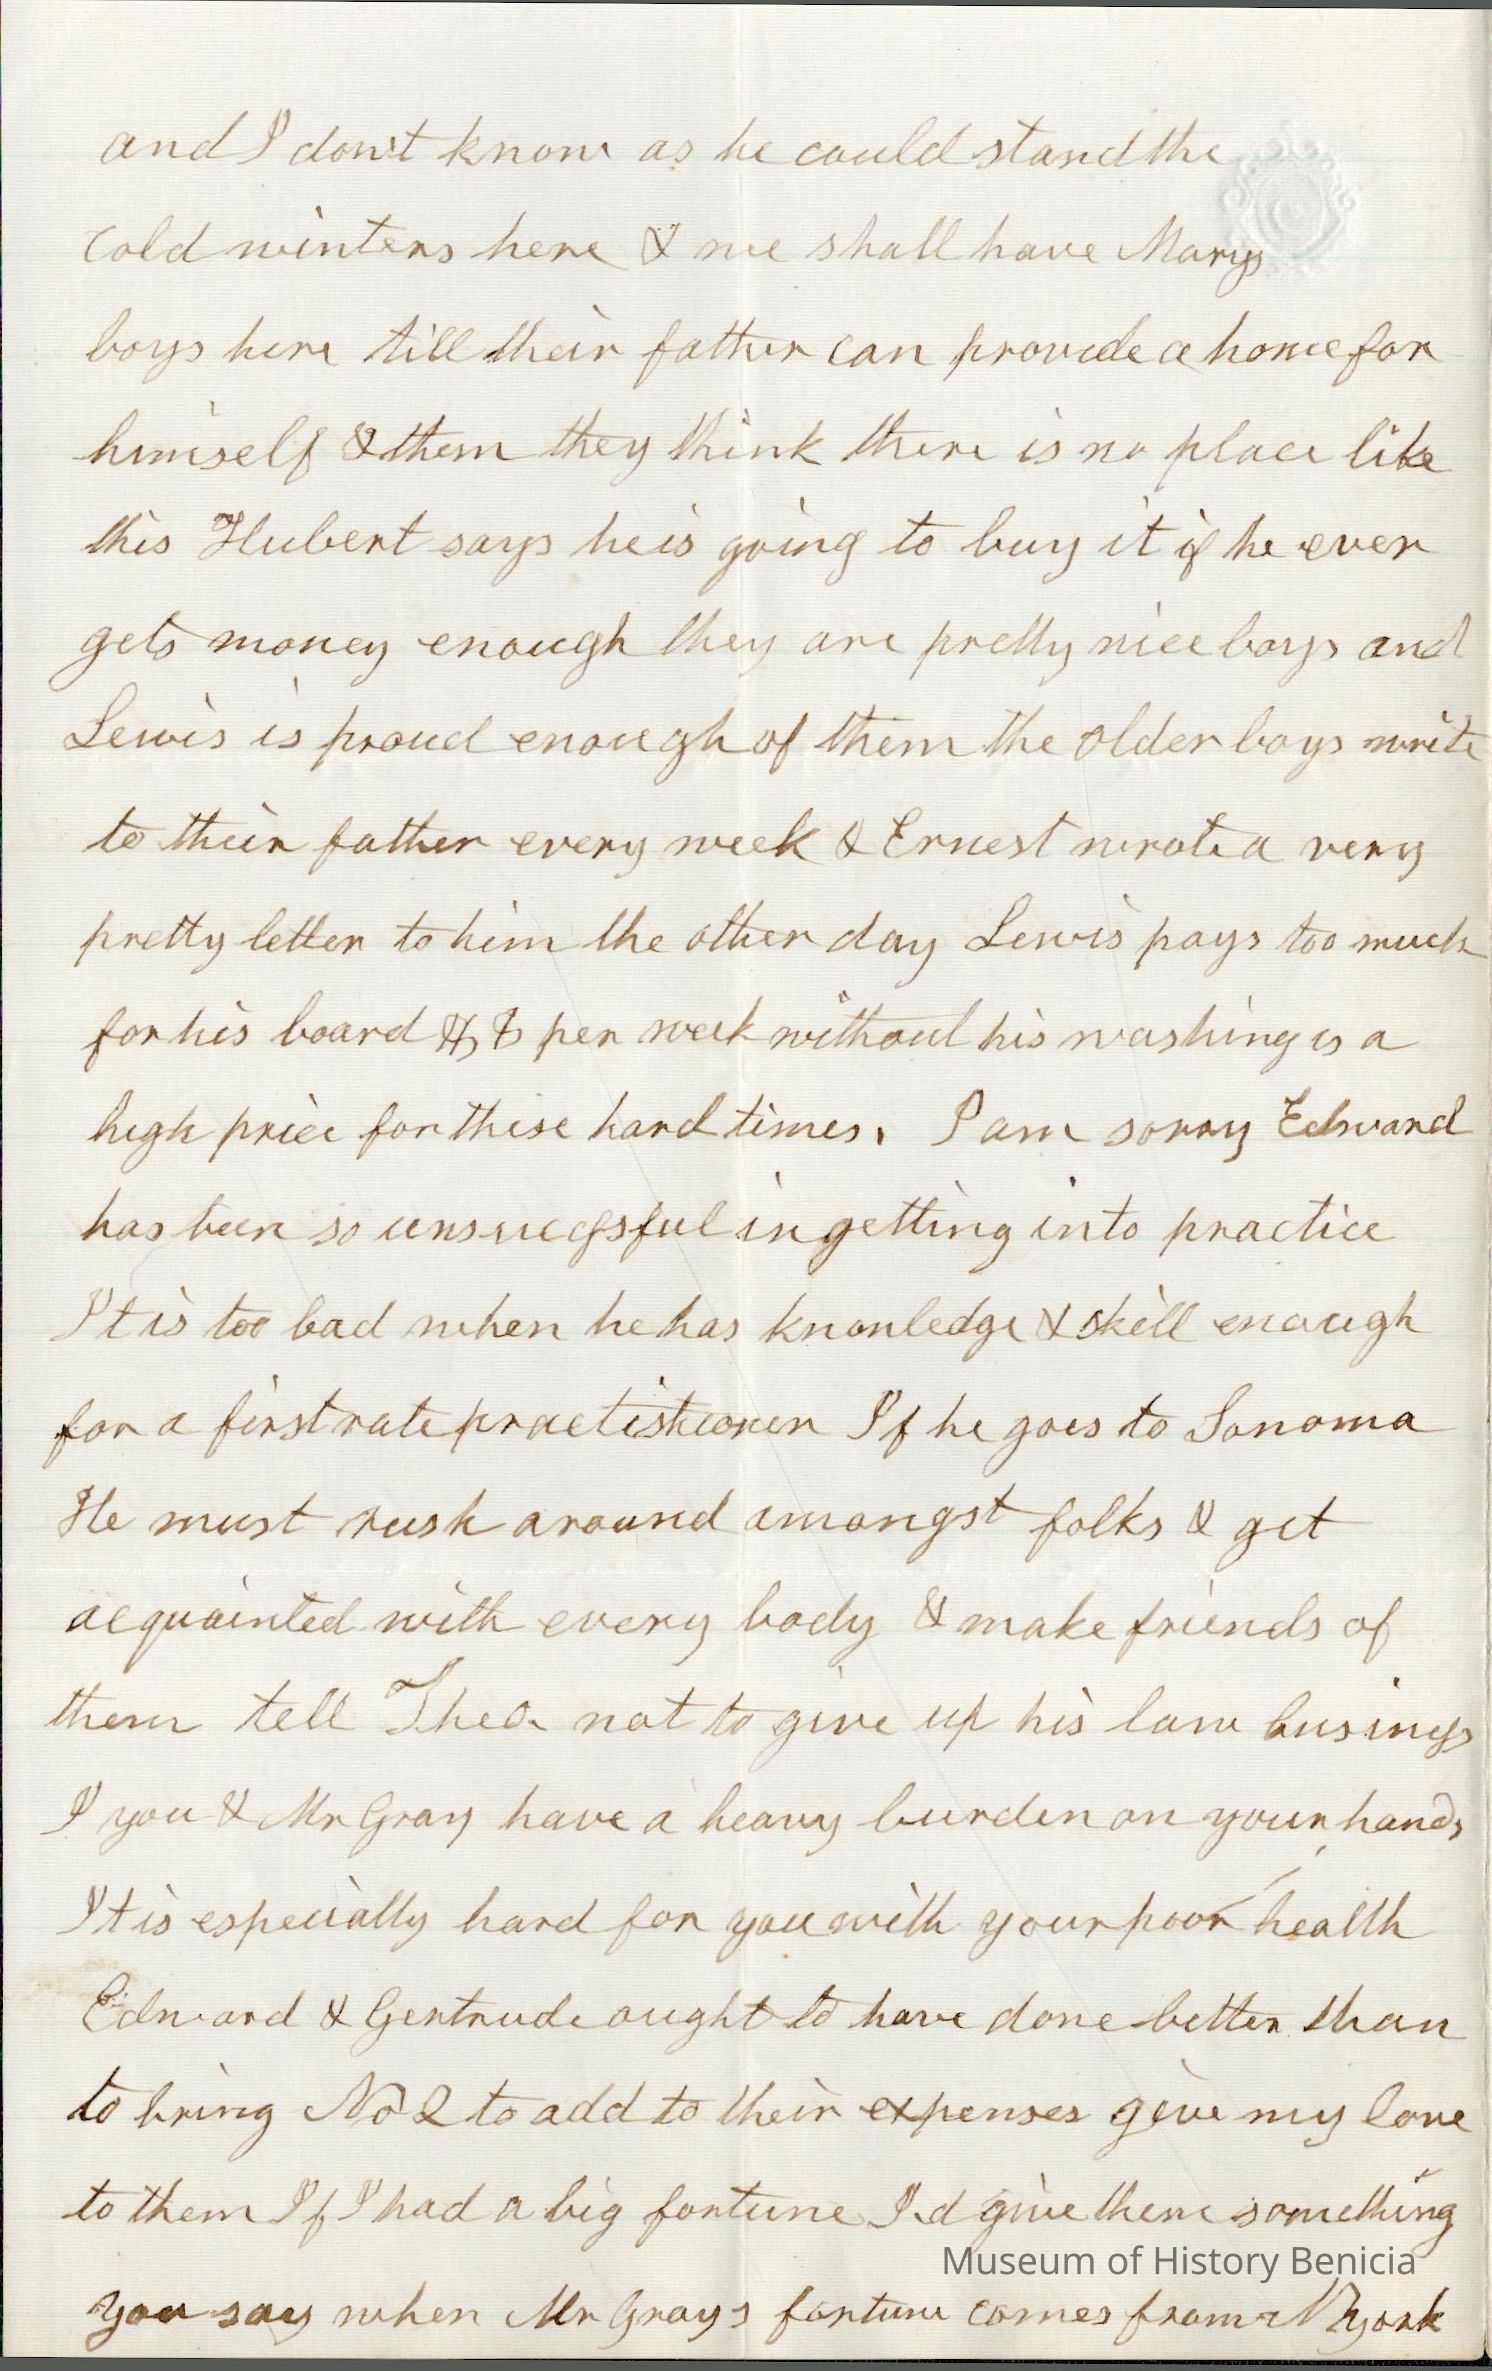 and I don't know as he could stand the
cold winters here & we shall have Marys
boys here till their father can provide a home for
himself & them they think there is no place like
this Hubert says he is going to buy it if he ever
gets money enough they are pretty nice boys and
Lewis is proud enough of them the older boys write
to their father every week & Ernest wrote a very
pretty letter to him the other day Lewis pays too much
for his board per week without his washing is a
high price for these hard times. I am sorry Edward
has been so unsucessful in getting into practice
It is too bad when he has knowledge & skill enough
for a first rate practistioner If he goes to Sonoma
He must rush around amongst folks & get
acquainted with every body & make friends of
them tell Theo. not to give up his law business
I you & Mr Gray have a heavy burden on your hands
It is especially hard for you with your poor health
Edward & Gertrude ought to have done better than
to bring No 2 to add to their expenses give my love
to them If I had a big fortune I'd give them something
Museum of History Benicia
you say when Mr Grays fortune comes from N York